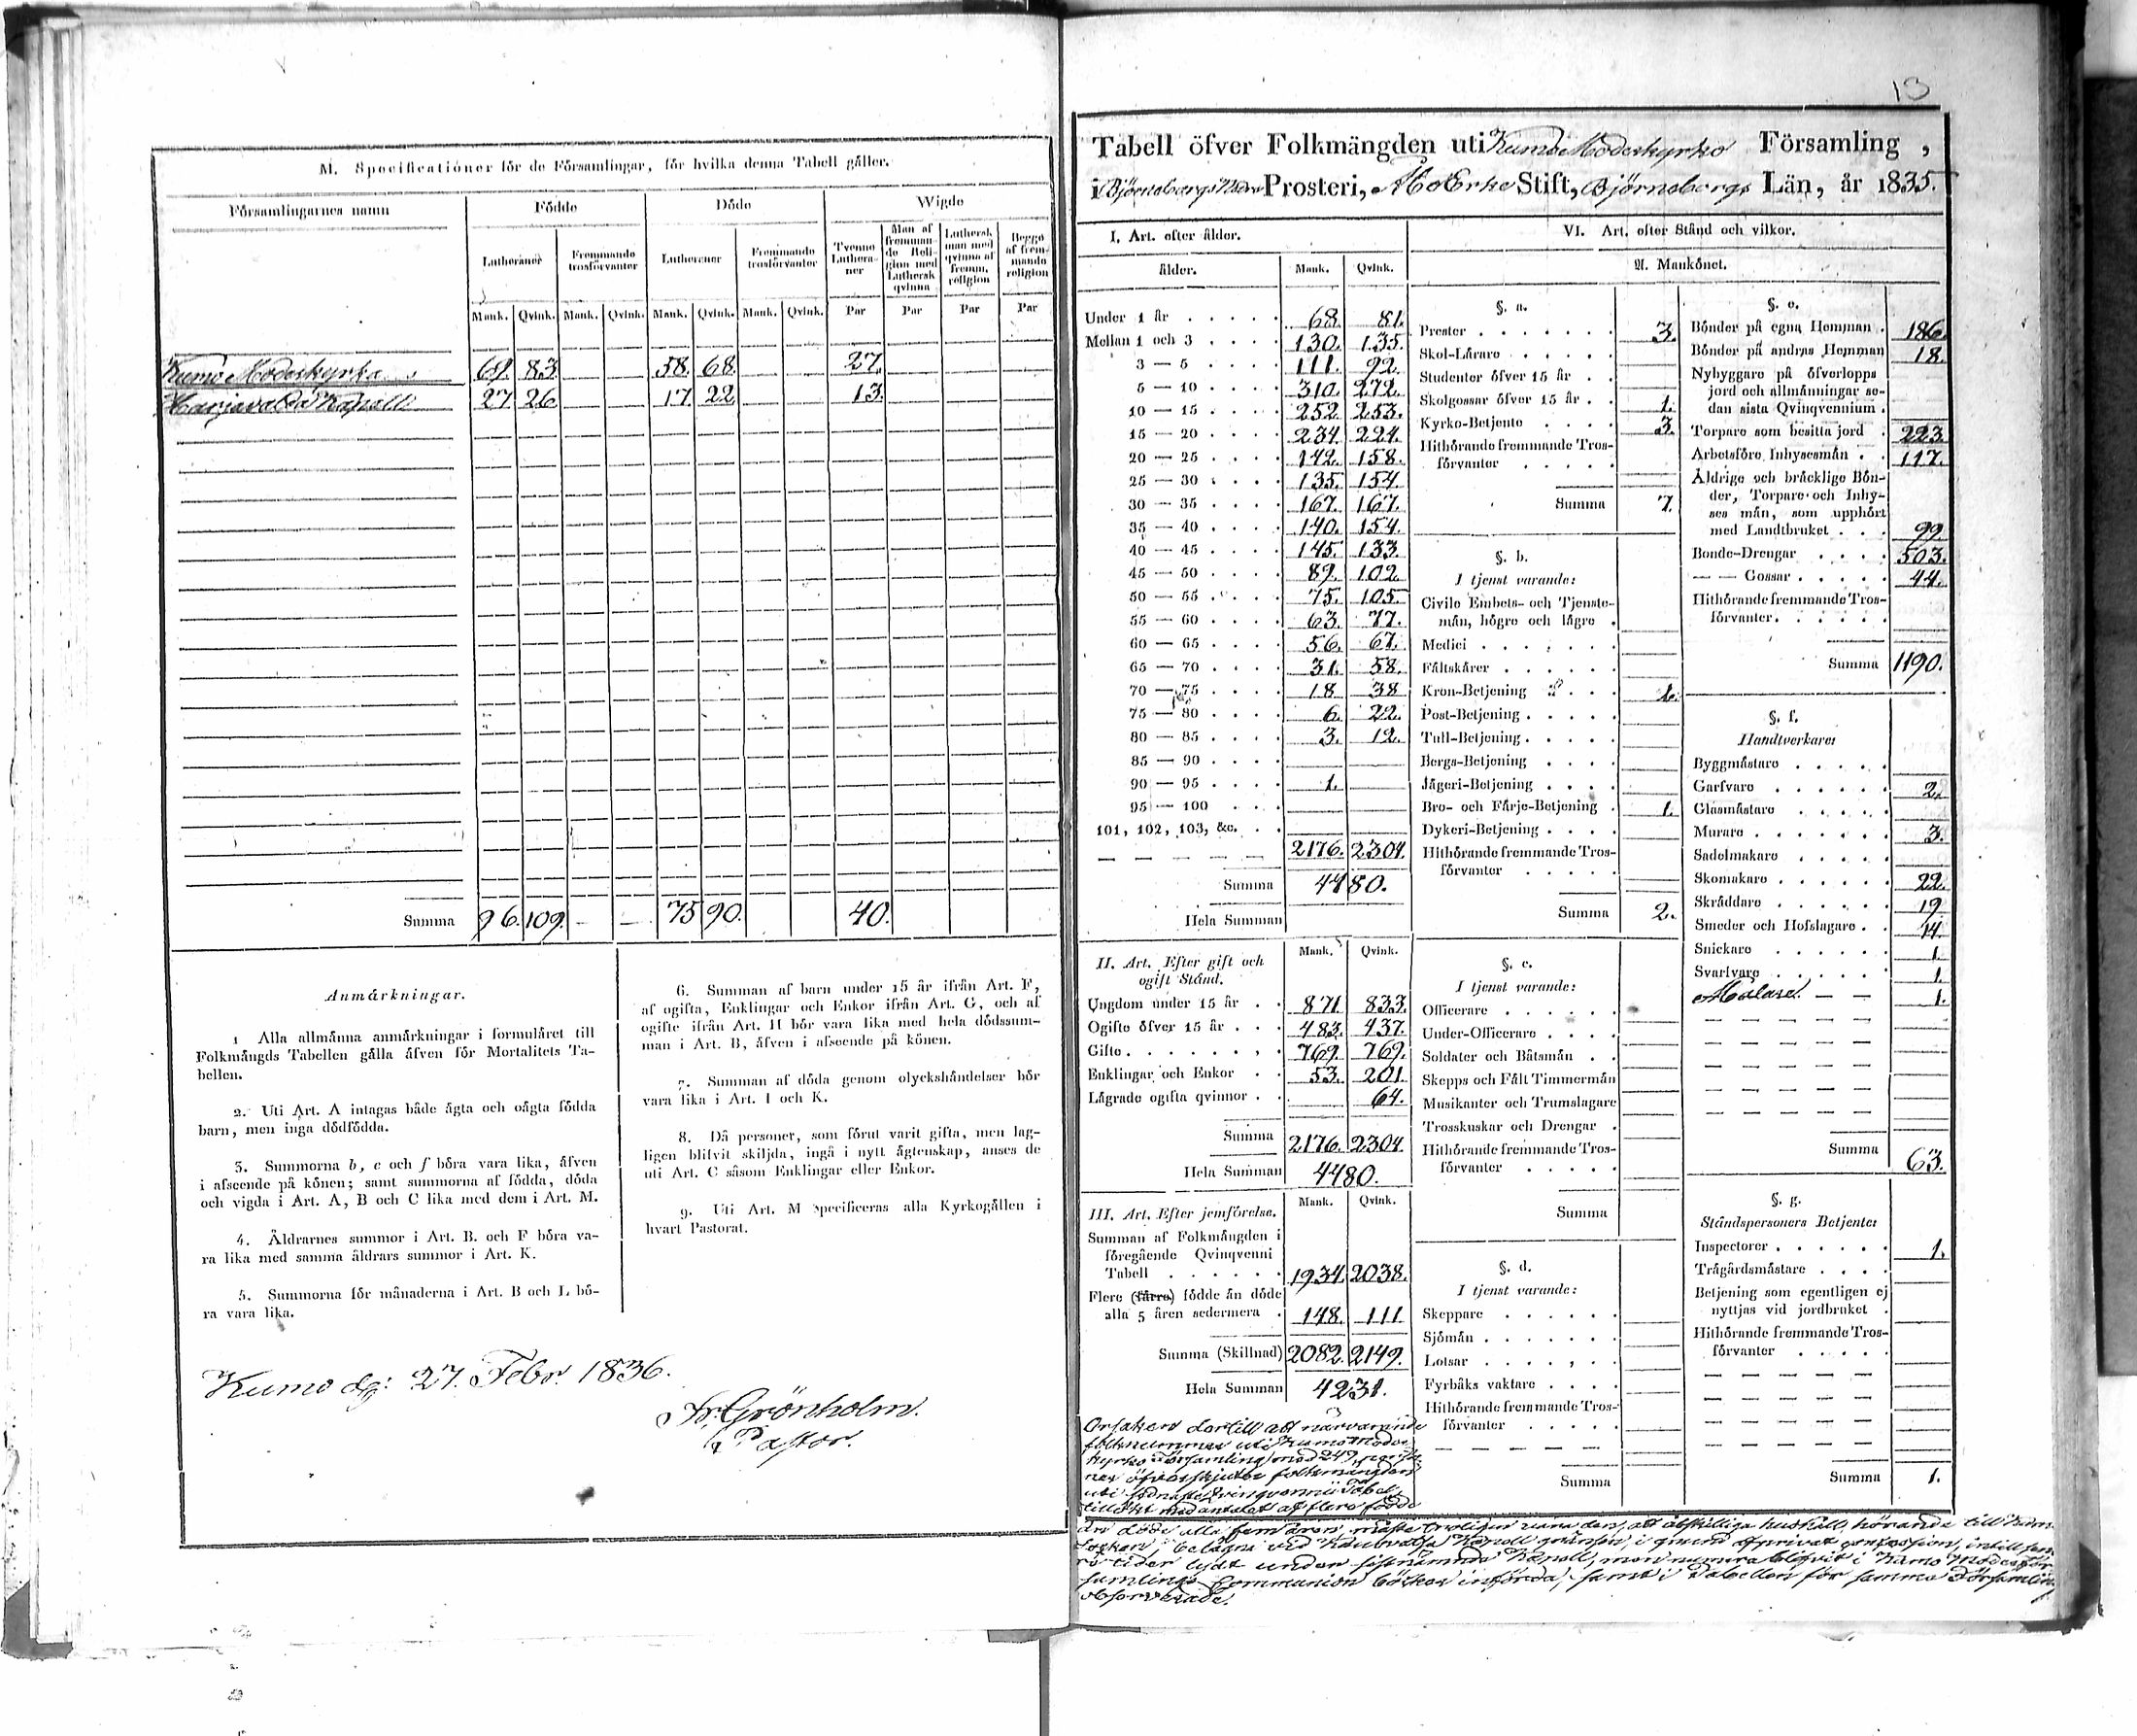 M. Specificationer för de Församlingar, för hvilka denna Tabell gäller.
Församlingarnes namn
Födde
Döde
Wigde
Lutheraner
Fremmande trosförvanter
Lutheraner
Fremmande trosförvanter
Tvenne Luthera-ner
Man af fremman-de Reli-gion med Luthersk qvinna
Luthersk man med qvinna af fremm. religion
Begge af frem-mande religion
Mank. Qvink. Mank. Qvink. Mank. Qvink. Mank. Qvink. Par Par Par Par
Kumo Moderkyrka 69. 83 58. 68. 27.
Harjavalda Kapell 27 26 17. 22 13.
Summa 96. 109. — — 75 90. 40.
Anmärkningar.
1 Alla allmänna anmärkningar i formuläret till
Folkmängds Tabellen gälla äfven för Mortalitets Ta-
bellen.
2. Uti Art. A intagas både ägta och oägta födda
barn, men inga dödfödda.
3. Summorna b, c och f böra vara lika, äfven
i afseende på könen; samt summorna af födda, döda
och vigda i Art. A, B och C lika med dem i Art. M.
4. Äldrarnes summor i Art. B. och F böra va-
ra lika med samma äldrars summor i Art. K.
5. Summorna för månaderna i Art. B och L bö-
ra vara lika.
6. Summan af barn under 15 år ifrån Art. F,
af ogifta, Enklingar och Enkor ifrån Art. G, och af
ogifte ifrån Art. H bör vara lika med hela dödssum-
man i Art. B, äfven i afseende på könen.
7. Summan af döda genom olyckshändelser bör
vara lika i Art. I och K.
8. Då personer, som förut varit gifta, men lag-
ligen blifvit skiljda, ingå i nytt ägtenskap, anses de
uti Art. C såsom Enklingar eller Enkor.
9. Uti Art. M specificeras alla Kyrkogällen i
hvart Pastorat.
Kumo dg: 27. Febr. 1836.
Fr. Grönholm.
Pastor.
13
Tabell öfver Folkmängden uti Kumo Moderkyrko Församling,
i Björneborgs Prosteri, Åbo Erke Stift, Björneborgs Län, år 1835.
I. Art. efter ålder.
ålder. Mank. Qvink.
Under 1 år 68. 81.
Mellan 1 och 3 130. 135.
3 — 5 111. 92.
5 — 10 310. 272.
10 — 15 252. 253.
15 — 20 234. 224.
20 — 25 142. 158.
25 — 30 135. 154.
30 — 35 167. 167.
35 — 40 140. 154.
40 — 45 145. 133.
45 — 50 89. 102.
50 — 55 75. 105.
55 — 60 63. 77.
60 — 65 56. 67.
65 — 70 31. 58.
70 — 75 18 38
75 — 80 6. 22.
80 — 85 3. 12.
85 — 90
90 — 95 1.
95 — 100
101, 102, 103, &c.
— — — — — 2176. 2304.
Summa 4480.
Hela Summan
Mank. Qvink.
II. Art. Efter gift och
ogift Stånd.
Ungdom under 15 år 871. 833.
Ogifte öfver 15 år 483. 437.
Gifte 769. 769.
Enklingar och Enkor 53. 201
Lägrade ogifta qvinnor 64.
Summa 2176. 2304.
Hela Summan 4480.
Mank. Qvink.
III. Art. Efter jemförelse.
Summan af Folkmängden i
föregående Qvinqvenni
Tabell 1934. 2038.
Flere (färre) födde än döde
alla 5 åren sedermera 148. 111
Summa (Skillnad) 2082. 2149.
Hela Summan 4231.
VI. Art. efter Stånd och vilkor.
A. Mankönet.
§. a.
Prester 3.
Skol-Lärare
Studenter öfver 15 år
Skolgossar öfver 15 år 1.
Kyrko-Betjente 3.
Hithörande fremmande Tros-
förvanter
Summa 7.
§. b.
I tjenst varande:
Civile Embets- och Tjenste-
män, högre och lägre
Medici
Fältskärer
Kron-Betjening 1.
Post-Betjening
Tull-Betjening
Bergs-Betjening
Jägeri-Betjening
Bro- och Färje-Betjening 1.
Dykeri-Betjening
Hithörande fremmande Tros-
förvanter
Summa 2.
§. c.
I tjenst varande:
Officerare
Under-Officerare
Soldater och Båtsmän
Skepps och Fält Timmermän
Musikanter och Trumslagare
Trosskuskar och Drengar
Hithörande fremmande Tros-
förvanter
Summa
§. d.
I tjenst varande:
Skeppare
Sjömän
Lotsar
Fyrbåks vaktare
Hithörande fremmande Tros-
förvanter
Summa
§. e.
Bönder på egna Hemman 186.
Bönder på andras Hemman 18.
Nybyggare på öfverlopps
jord och allmänningar se-
dan sista Qvinqvennium
Torpare som besitta jord 223.
Arbetsföre Inhysesmän 117.
Åldrige och bräcklige Bön-
der, Torpare och Inhy-
ses män, som upphört
med Landtbruket 99
Bonde-Drengar 503.
— — Gossar 44.
Hithörande fremmande Tros-
förvanter
Summa 1190.
§. f.
Handtverkare:
Byggmästare
Garfvare 2.
Glasmästare
Murare 3.
Sadelmakare
Skomakare 22.
Skräddare 19
Smeder och Hofslagare 14.
Snickare 1.
Svarfvare 1.
Målare. 1.
Summa 63.
§. g.
Ståndspersoners Betjente:
Inspectorer 1.
Trägårdsmästare
Betjening som egentligen ej
nyttjas vid jordbruket
Hithörande fremmande Tros-
förvanter
Summa 1.
Orsaken dertill att närvarande
folknummer uti Kumo Moder
kyrko Församling med 249
öfverskjuter folkmängden
uti Qvinqvennii Tabel,
tillökt med antalet af flere födde
än döde alla fem åren, måste troligen vara den, att åtskillige hushåll, hörande till Kumo
Socken, belägne vid Kapell gränsen, i grund af privat, intill sed
re tider lydt under sistnämnde Kapell, men numera blifvit i Kumo Moder för
samlings Communion böcker införda, samt i Tabellen för samma Församling
observerade.